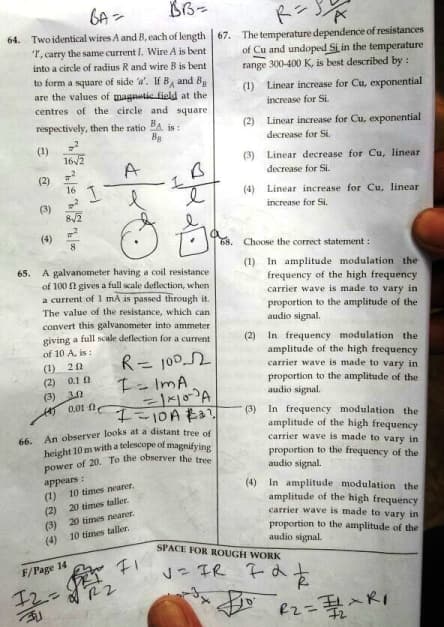 BA =
BB=
R =
A
64. Two identical wires A and B, each of length
'l', carry the same current I. Wire A is bent
into a circle of radius R and wire B is bent
to form a square of side 'a'. If B_A and B_B
are the values of magnetic field at the
centres of the circle and square
respectively, then the ratio B_A/B_B is :
(1) π²/16√2
(2) π²/16
(3) π²/8√2
(4) π²/8
A
B
I
l
I
l
l
l
a
65. A galvanometer having a coil resistance
of 100 Ω gives a full scale deflection, when
a current of 1 mA is passed through it.
The value of the resistance, which can
convert this galvanometer into ammeter
giving a full scale deflection for a current
of 10 A, is :
(1) 2 Ω
(2) 0.1 Ω
(3) 3 Ω
(4) 0.01 Ω
R = 100 Ω
I = 1mA
= 1×10⁻³A
I = 10A R=?
66. An observer looks at a distant tree of
height 10 m with a telescope of magnifying
power of 20. To the observer the tree
appears :
(1) 10 times nearer.
(2) 20 times taller.
(3) 20 times nearer.
(4) 10 times taller.
67. The temperature dependence of resistances
of Cu and undoped Si in the temperature
range 300-400 K, is best described by :
(1) Linear increase for Cu, exponential
increase for Si.
(2) Linear increase for Cu, exponential
decrease for Si.
(3) Linear decrease for Cu, linear
decrease for Si.
(4) Linear increase for Cu, linear
increase for Si.
68. Choose the correct statement :
(1) In amplitude modulation the
frequency of the high frequency
carrier wave is made to vary in
proportion to the amplitude of the
audio signal.
(2) In frequency modulation the
amplitude of the high frequency
carrier wave is made to vary in
proportion to the amplitude of the
audio signal.
(3) In frequency modulation the
amplitude of the high frequency
carrier wave is made to vary in
proportion to the frequency of the
audio signal.
(4) In amplitude modulation the
amplitude of the high frequency
carrier wave is made to vary in
proportion to the amplitude of the
audio signal.
SPACE FOR ROUGH WORK
F/Page 14
V = IR I α 1/R
R2 = I1/I2 × R1